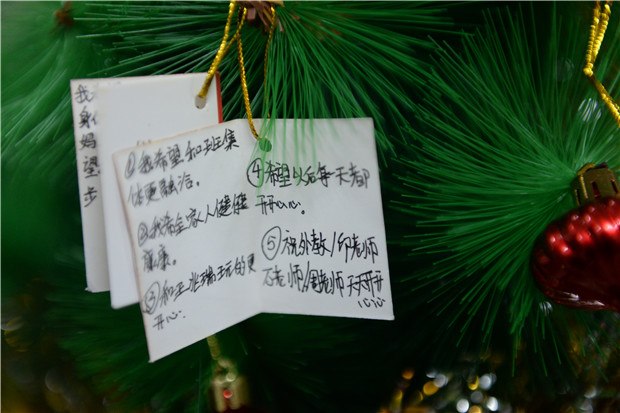 ①我希望和班集
体更融洽。
②我希全家人健健
康康。
③和王 瑞玩的更
开心。
④希望以后每一天都
开开心心。
⑤祝外教/印老师
石老师/周老师天天开开
心心
我
身
妈
望
步